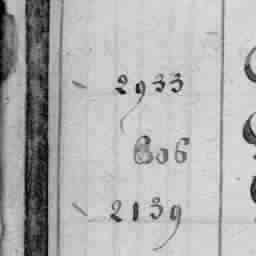 2933
606
2139